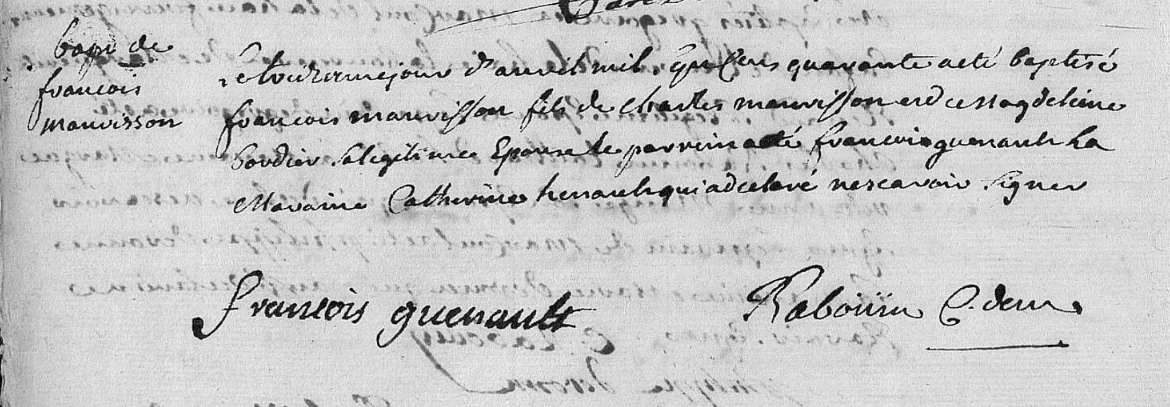 bap. de
françois
mauvisson
Le jour d'avril mil Sept Cens quarante a eté baptisé
françois mauvisson fils de Charles mauvisson et de Magdeleine
bordier Sa legitime Epouse le parrin a eté françois guenault La
Maraine Catherine henault qui a declaré ne scavoir Signer
françois guenault
Rabouin C. de